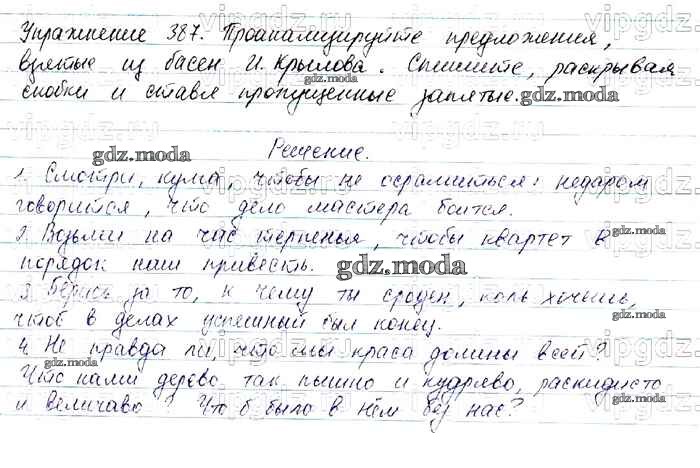 Упражнение 387. Проанализируйте предложения,
взятые из басен И. Крылова. Спишите, раскрывая
скобки и ставя пропущенные запятые.
Решение.
1. Смотри, кума, чтобы не осрамиться: недаром
говорится, что дело мастера боится.
2. Возьми на час терпенья, чтобы квартет в
порядок наш привесть.
3. Берись за то, к чему ты сроден, коль хочешь,
чтоб в делах успешный был конец.
4. Не правда ли, что мы краса долины всей?
Что нами дерево так пышно и кудряво, раскидисто
и величаво? Что б было в нём без нас?